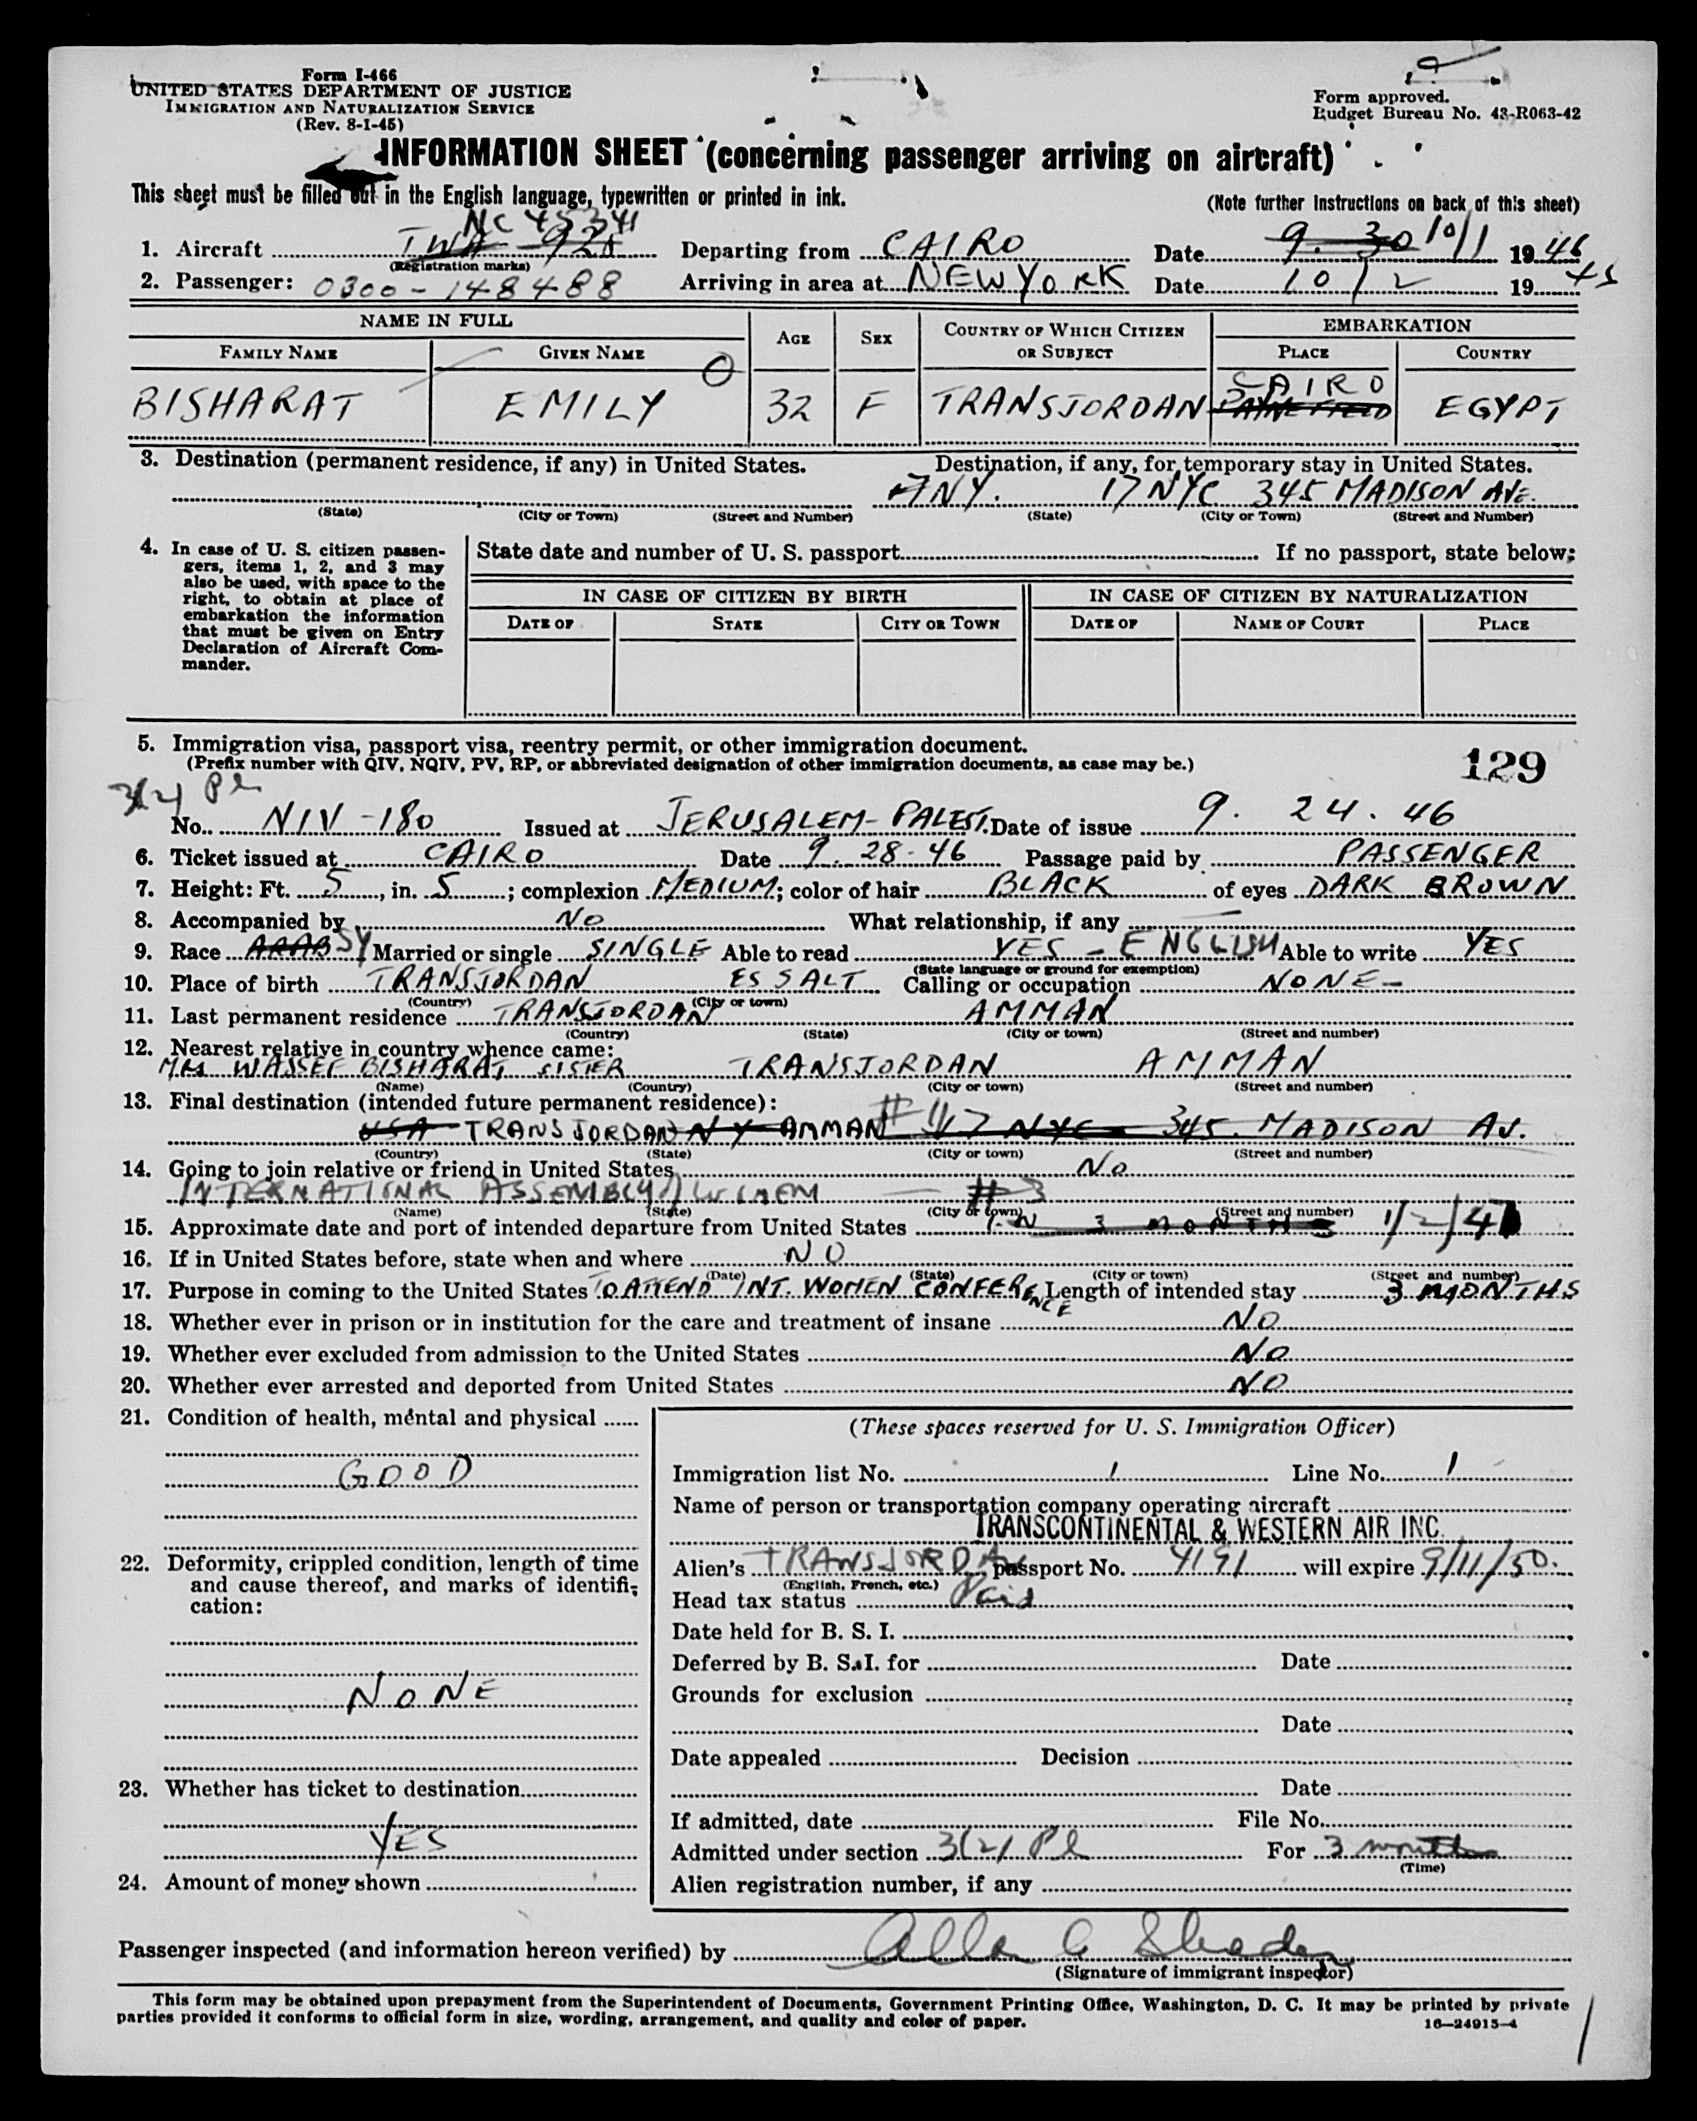 Form I-466
UNITED STATES DEPARTMENT OF JUSTICE
IMMIGRATION AND NATURALIZATION SERVICE
(Rev. 8-1-45)
Form approved.
Budget Bureau No. 43-R063-42
INFORMATION SHEET (concerning passenger arriving on aircraft)
This sheet must be filled out in the English language, typewritten or printed in ink.
(Note further instructions on back of this sheet)
NC 45341
1. Aircraft TWA 920 Departing from CAIRO Date 9. 30 10/1 1946
(Registration marks)
2. Passenger: 0300-148488 Arriving in area at NEW YORK Date 10/2 19
NAME IN FULL AGE SEX COUNTRY OF WHICH CITIZEN OR SUBJECT EMBARKATION
FAMILY NAME GIVEN NAME PLACE COUNTRY
BISHARAT EMILY O 32 F TRANSJORDAN CAIRO PAYNE FIELD EGYPT
3. Destination (permanent residence, if any) in United States. Destination, if any, for temporary stay in United States.
NY. 17 NYC 345 MADISON AVE.
(State) (City or Town) (Street and Number) (State) (City or Town) (Street and Number)
4. In case of U. S. citizen passengers, items 1, 2, and 3 may also be used, with space to the right, to obtain at place of embarkation the information that must be given on Entry Declaration of Aircraft Commander.
State date and number of U. S. passport If no passport, state below:
IN CASE OF CITIZEN BY BIRTH IN CASE OF CITIZEN BY NATURALIZATION
DATE OF STATE CITY OR TOWN DATE OF NAME OF COURT PLACE
5. Immigration visa, passport visa, reentry permit, or other immigration document.
(Prefix number with QIV, NQIV, PV, RP, or abbreviated designation of other immigration documents, as case may be.)
129
3(2) Pl
No. NIV-180 Issued at JERUSALEM-PALEST. Date of issue 9. 24. 46
6. Ticket issued at CAIRO Date 9. 28-46 Passage paid by PASSENGER
7. Height: Ft. 5, in. 5; complexion MEDIUM; color of hair BLACK of eyes DARK BROWN
8. Accompanied by NO What relationship, if any —
9. Race ARAB SY Married or single SINGLE Able to read YES - ENGLISH Able to write YES
(State language or ground for exemption)
10. Place of birth TRANSJORDAN ES SALT Calling or occupation NONE-
(Country) (City or town)
11. Last permanent residence TRANSJORDAN AMMAN
(Country) (State) (City or town) (Street and number)
12. Nearest relative in country whence came:
MRS WASSEF BISHARAT SISTER TRANSJORDAN AMMAN
(Name) (Country) (City or town) (Street and number)
13. Final destination (intended future permanent residence):
USA TRANSJORDAN NY AMMAN # 17 NYC 345. MADISON AV.
(Country) (State) (City or town) (Street and number)
14. Going to join relative or friend in United States NO
INTERNATIONAL ASSEMBLY of WOMEN — #3
(Name) (State) (City or town) (Street and number)
15. Approximate date and port of intended departure from United States IN 3 MONTHS 1/2/47
16. If in United States before, state when and where NO
(Date) (State) (City or town) (Street and number)
17. Purpose in coming to the United States TO ATTEND INT. WOMEN CONFERENCE Length of intended stay 3 MONTHS
18. Whether ever in prison or in institution for the care and treatment of insane NO
19. Whether ever excluded from admission to the United States NO
20. Whether ever arrested and deported from United States NO
21. Condition of health, mental and physical
GOOD
22. Deformity, crippled condition, length of time and cause thereof, and marks of identification:
NONE
23. Whether has ticket to destination
YES
24. Amount of money shown
(These spaces reserved for U. S. Immigration Officer)
Immigration list No. 1 Line No. 1
Name of person or transportation company operating aircraft
TRANSCONTINENTAL & WESTERN AIR INC.
Alien's TRANSJORDAN passport No. 4191 will expire 9/11/50.
(English, French, etc.)
Head tax status Paid
Date held for B. S. I.
Deferred by B. S. I. for Date
Grounds for exclusion
Date
Date appealed Decision
Date
If admitted, date File No.
Admitted under section 3(2) Pl For 3 months
(Time)
Alien registration number, if any
Passenger inspected (and information hereon verified) by
(Signature of immigrant inspector)
This form may be obtained upon prepayment from the Superintendent of Documents, Government Printing Office, Washington, D. C. It may be printed by private
parties provided it conforms to official form in size, wording, arrangement, and quality and color of paper.
16—24915-4